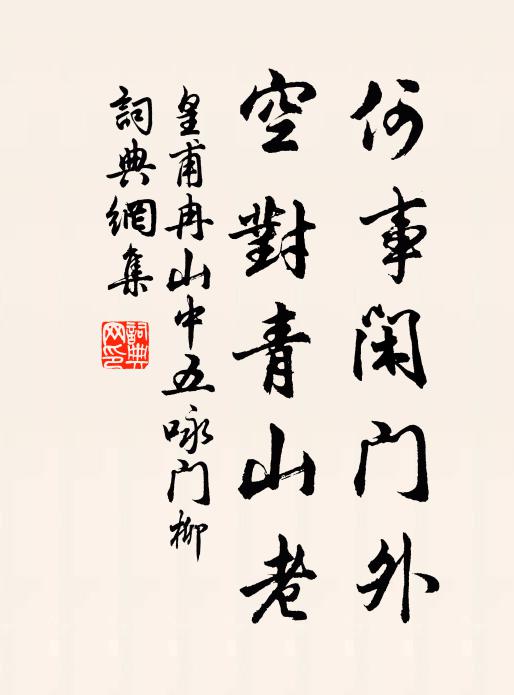 何事閑门外
空對青山老
皇甫冉山中五咏门柳
詞典網集
詞典网印